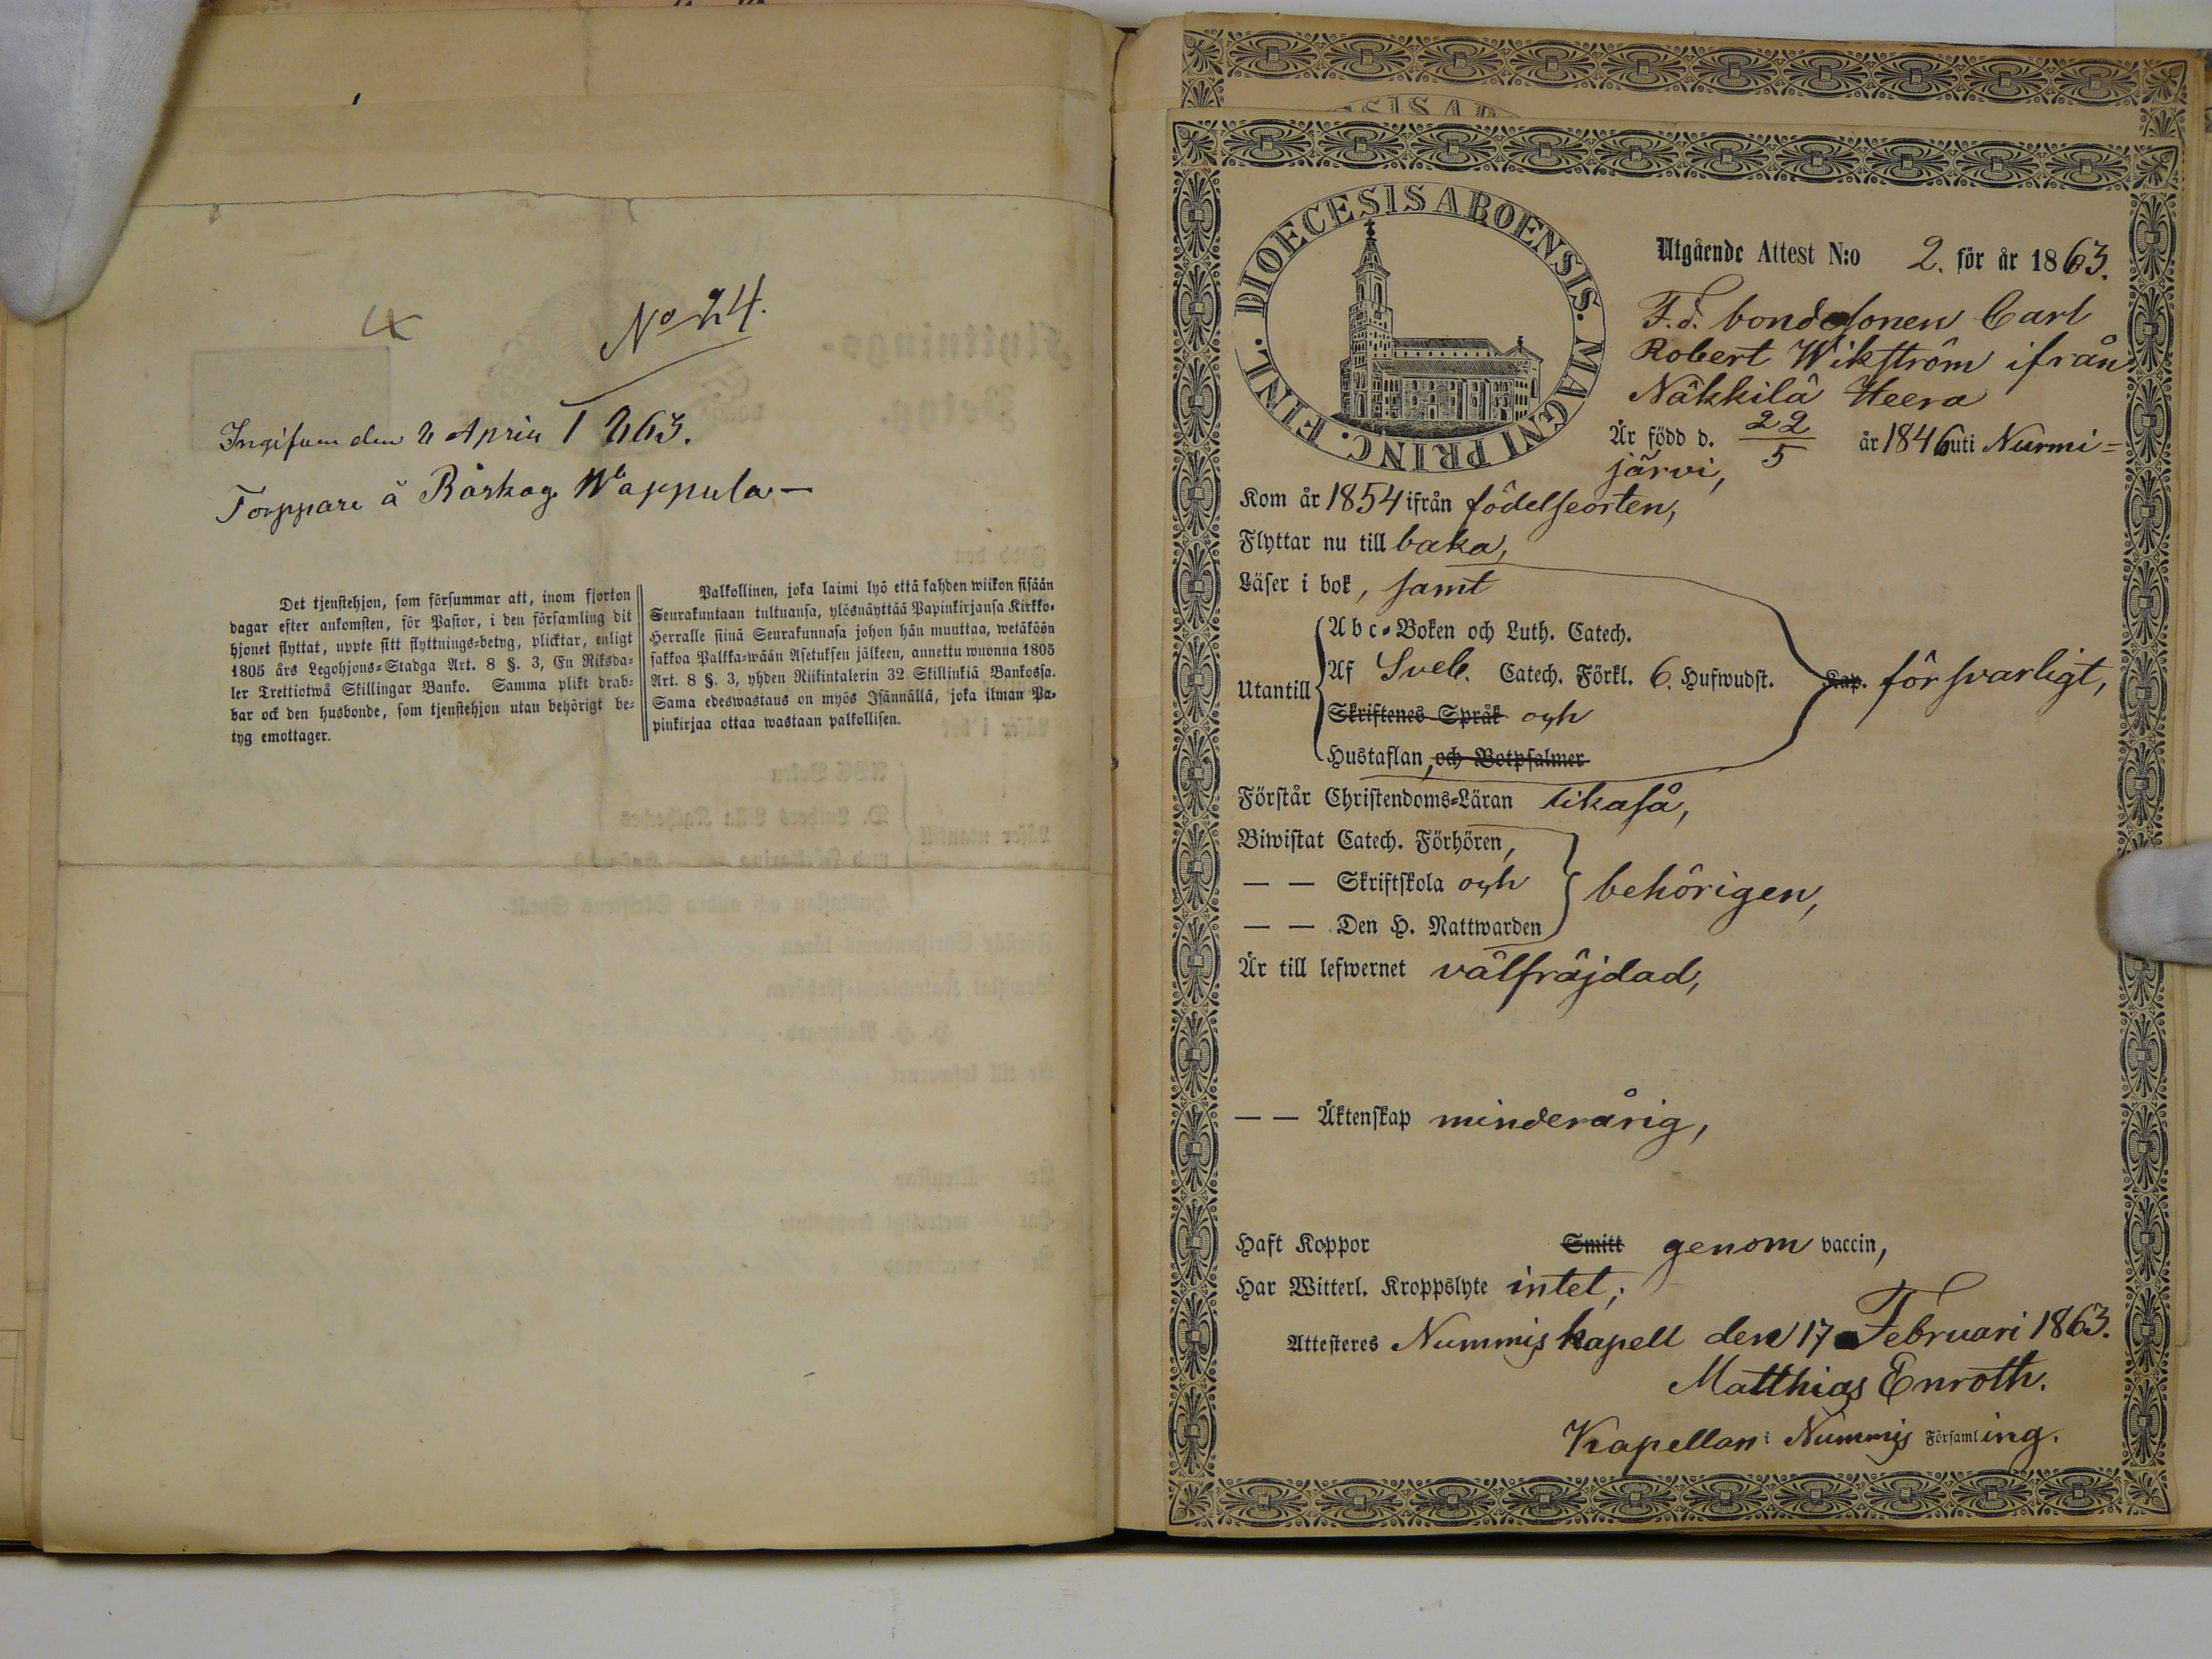 No 24.
Ingifven den 2 April 1863.
Torppare å Råskog Wappula—
Det tjenstehjon, som försummar att, inom fjorton
dagar efter ankomsten, för Pastor, i den församling dit
hjonet flyttat, uppte sitt flyttnings-betyg, plicktar, enligt
1805 års Legohjons-Stadga Art. 8 §. 3, En Riksda-
ler Trettiotwå Skillingar Banko. Samma plikt drab-
bar ock den husbonde, som tjenstehjon utan behörigt be-
tyg emottager.
Palkollinen, joka laimi lyö että kahden wiikon sisään
Seurakuntaan tultuansa, ylösnäyttää Papinkirjansa Kirkko-
Herralle siinä Seurakunnasa johon hän muuttaa, wetäköön
sakkoa Palkka-wään Asetuksen jälkeen, annettu wuonna 1805
Art. 8 §. 3, yhden Riikintalerin 32 Skillinkiä Bankossa.
Sama edeswastaus on myös Isännällä, joka ilman Pa-
pinkirjaa ottaa wastaan palkollisen.
DIOECESIS ABOENSIS. MAGNI PRINC. FINL.
Utgående Attest N:o 2. för år 1863.
F.d. bondesonen Carl
Robert Wikström ifrån
Näkkilä Heera
Är född d. 22/5 år 1846 uti Nurmi=
järvi,
Kom år 1854 ifrån födelseorten,
Flyttar nu till baka,
Läser i bok, samt
Utantill
Abc-Boken och Luth. Catech.
Af Sveb. Catech. Förkl. 6. Hufwudst. Kap. försvarligt,
Skriftenes Språk och
Hustaflan, och Botpsalmer
Förstår Christendoms-Läran likaså,
Biwistat Catech. Förhören,
— — Skriftskola och behörigen,
— — Den H. Nattwarden
Är till lefwernet välfräjdad,
— — Äktenskap minderårig,
Haft Koppor Smitt genom vaccin,
Har Witterl. Kroppslyte intet;
Attesteres Nummis kapell den 17 Februari 1863.
Matthias Enroth.
Kapellan i Nummis Församling.